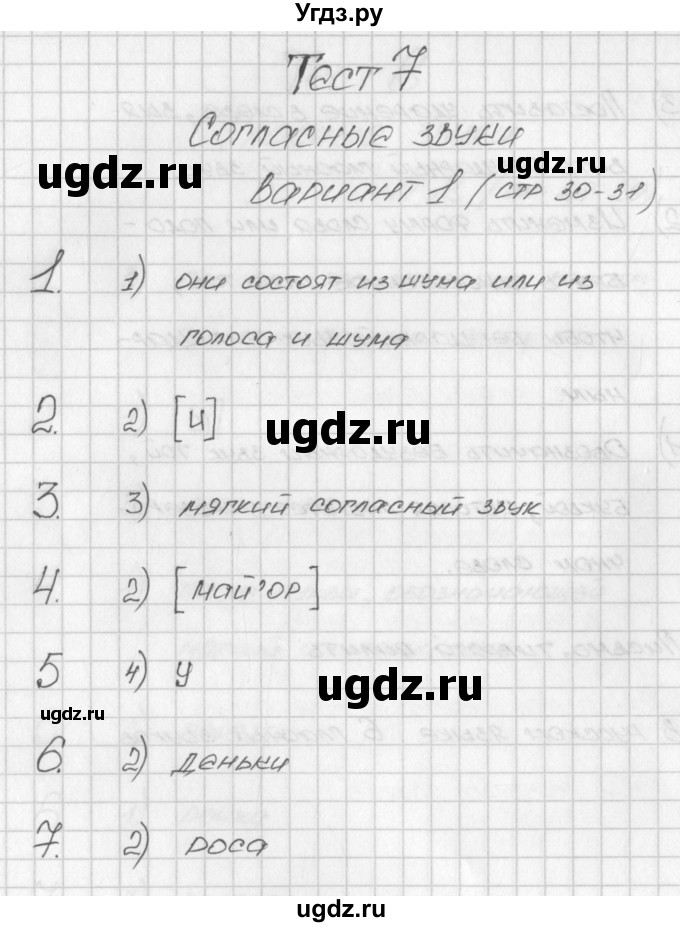 Угдз.ру
Тест 7
Согласные звуки
ugdz.ru
ugdz.ru
Вариант 1 (стр 30-31)
1. 1) они состоят из шума или из
голоса и шума
2. 2) [ч]
ugdz.ru
3. 3) мягкий согласный звук
4. 2) [май'ор]
5 4) у
ugdz.ru
ugdz.ru
6. 2) деньки
7. 2) роса
ugdz.ru
ugdz.ru